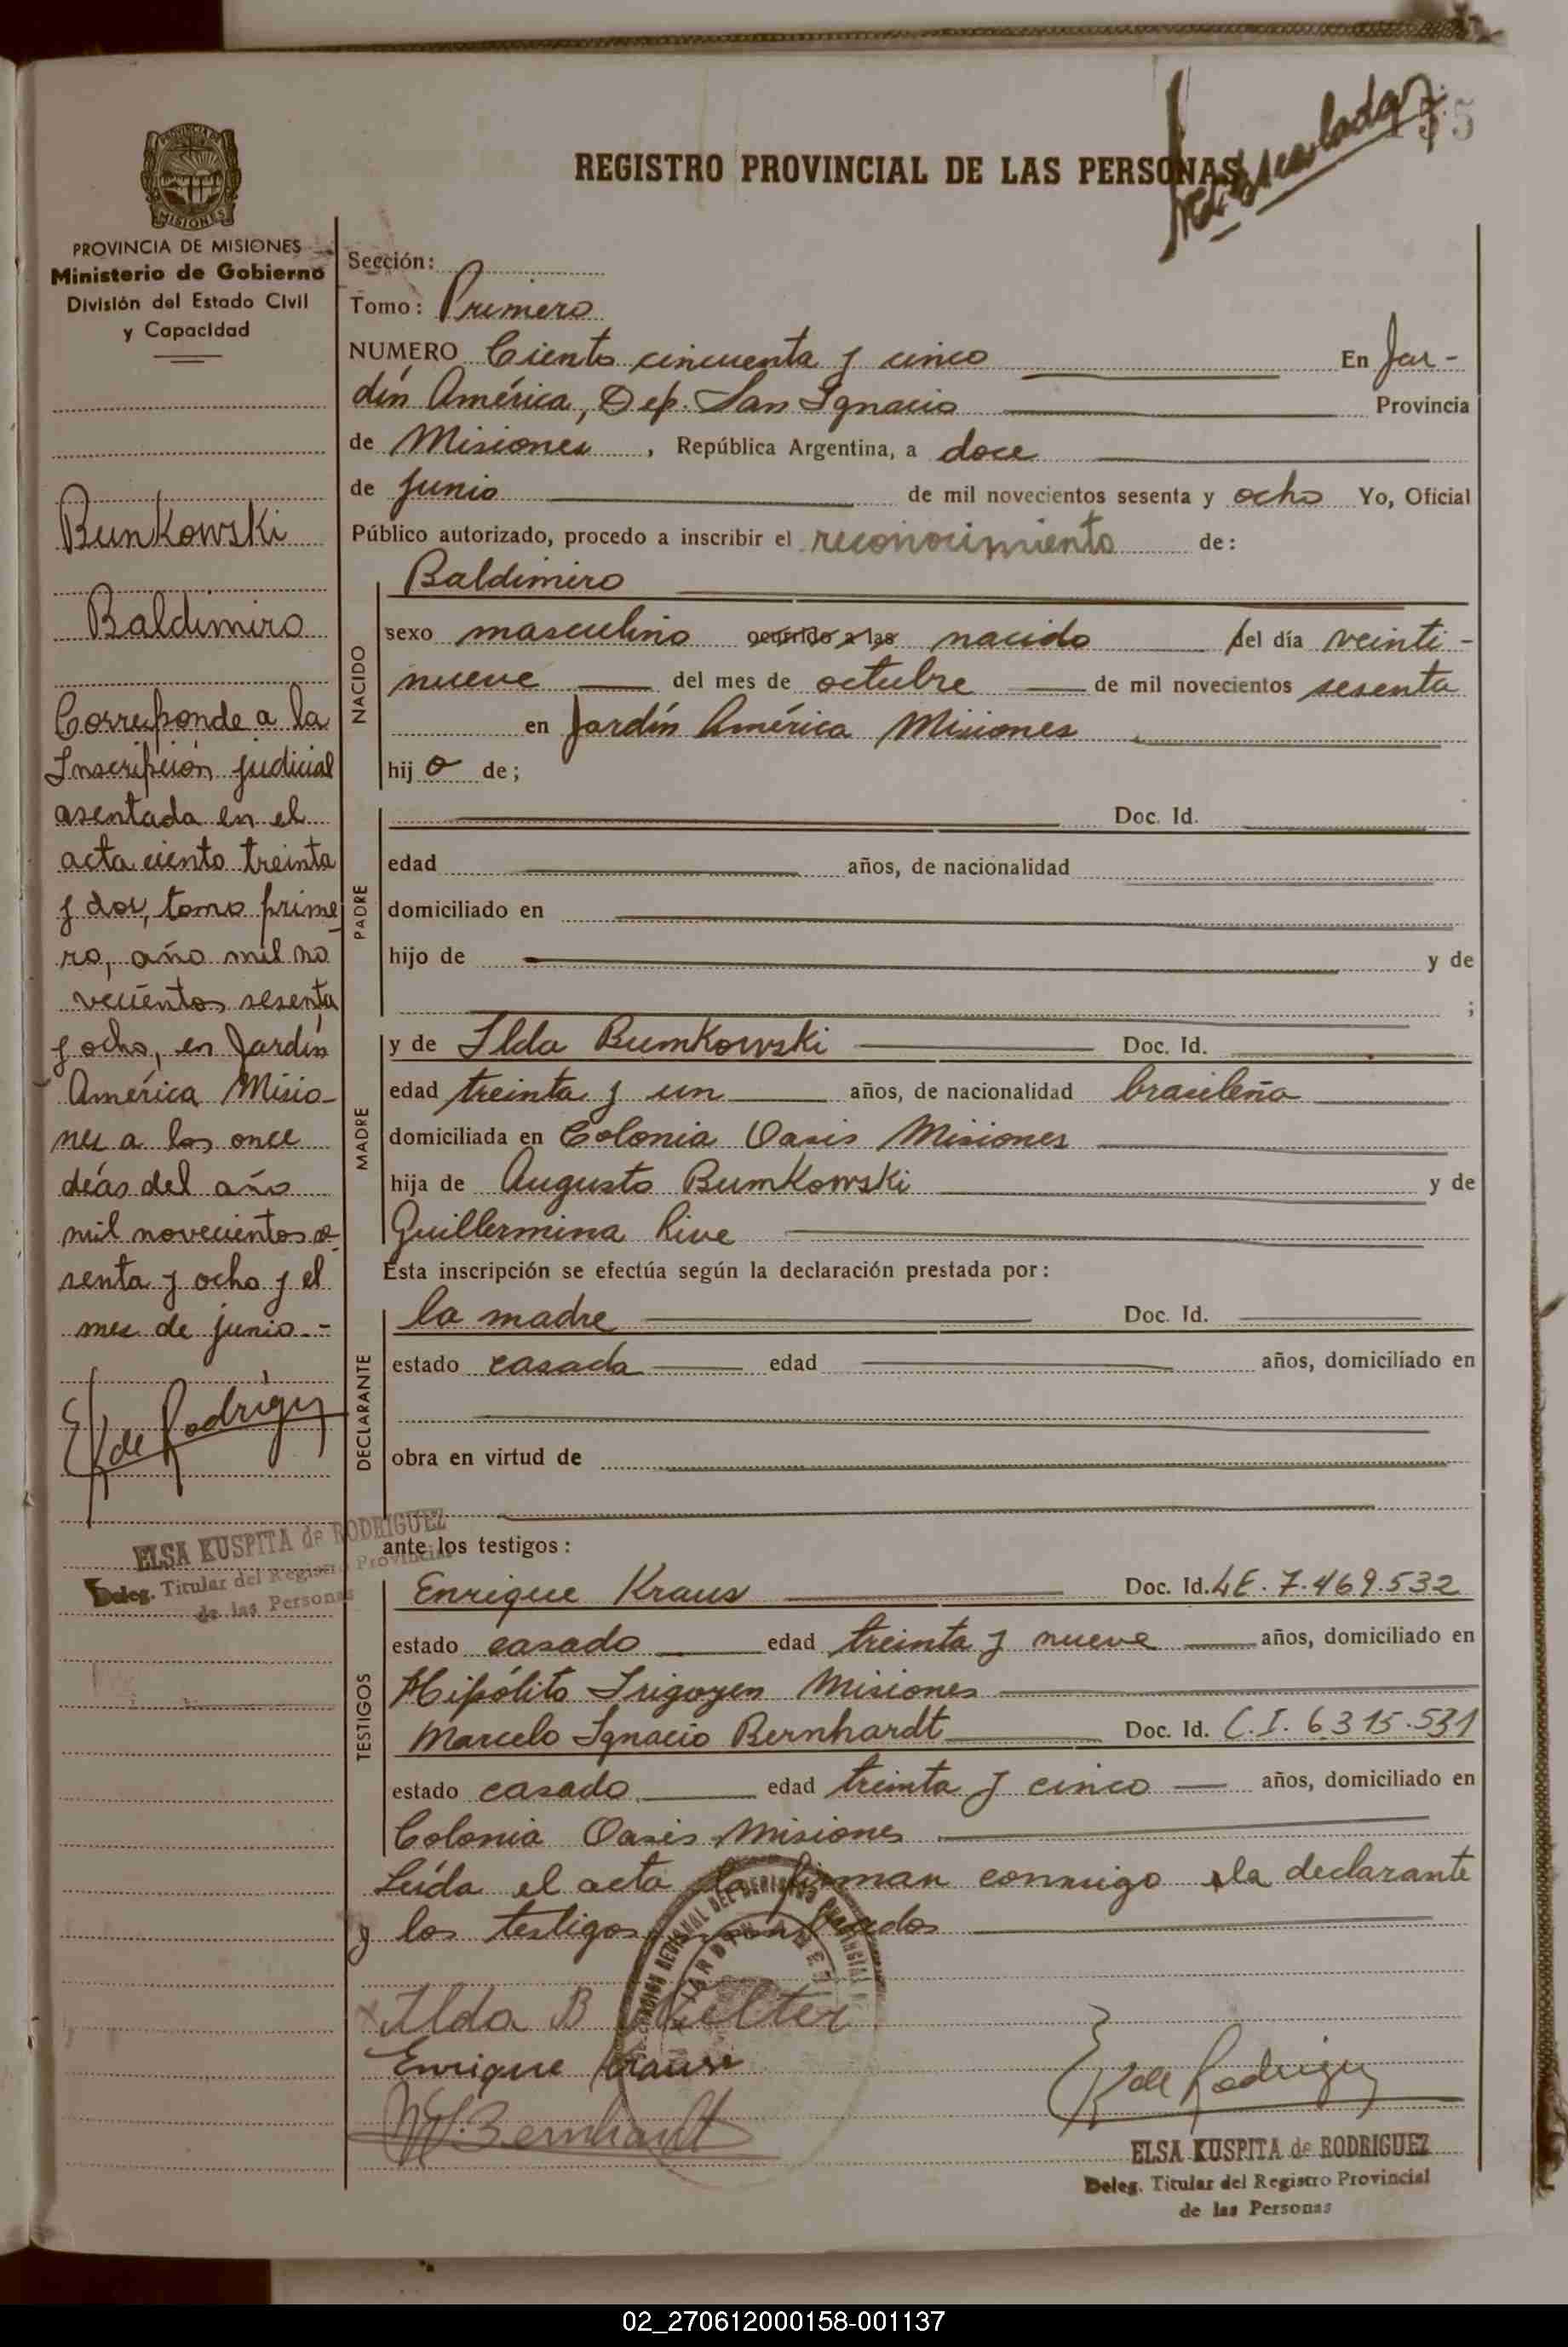 155
REGISTRO PROVINCIAL DE LAS PERSONAS
PROVINCIA DE
MISIONES
PROVINCIA DE MISIONES
Ministerio de Gobierno
División del Estado Civil
y Capacidad
Bunkowski
Baldimiro
Corresponde a la
Inscripción judicial
asentada en el
acta ciento treinta
y dos, tomo prime
ro, año mil no
vecientos sesenta
y ocho, en Jardín
América Misio-
nes a los once
días del año
mil novecientos se
senta y ocho y el
mes de junio.-
E K de Rodriguez
ELSA KUSPITA de RODRIGUEZ
Deleg. Titular del Registro Provincial
de las Personas
Sección:
Tomo: Primero
NUMERO Ciento cincuenta y cinco En Jar-
dín América, Dep. San Ignacio Provincia
de Misiones, República Argentina, a doce
de junio de mil novecientos sesenta y ocho Yo, Oficial
Público autorizado, procedo a inscribir el reconocimiento de:
NACIDO
Baldimiro
sexo masculino ocurrido a las nacido del día veinti-
nueve del mes de octubre de mil novecientos sesenta
en Jardín América Misiones
hijo de;
PADRE
Doc. Id.
edad años, de nacionalidad
domiciliado en
hijo de y de
;
MADRE
y de Ilda Bumkowski Doc. Id.
edad treinta y un años, de nacionalidad brasileña
domiciliada en Colonia Oasis Misiones
hija de Augusto Bumkowski y de
Guillermina Rive
Esta inscripción se efectúa según la declaración prestada por:
DECLARANTE
la madre Doc. Id.
estado casada edad años, domiciliado en
obra en virtud de
ante los testigos:
TESTIGOS
Enrique Kraus Doc. Id. LE. 7.469.532
estado casado edad treinta y nueve años, domiciliado en
Hipólito Irigoyen Misiones
Marcelo Ignacio Bernhardt Doc. Id. C.I. 6315.531
estado casado edad treinta y cinco años, domiciliado en
Colonia Oasis Misiones
Leída el acta la firman conmigo la declarante
y los testigos nombrados
Ilda B
Enrique Kraus
Bernhardt
E K de Rodriguez
ELSA KUSPITA de RODRIGUEZ
Deleg. Titular del Registro Provincial
de las Personas
02_270612000158-001137